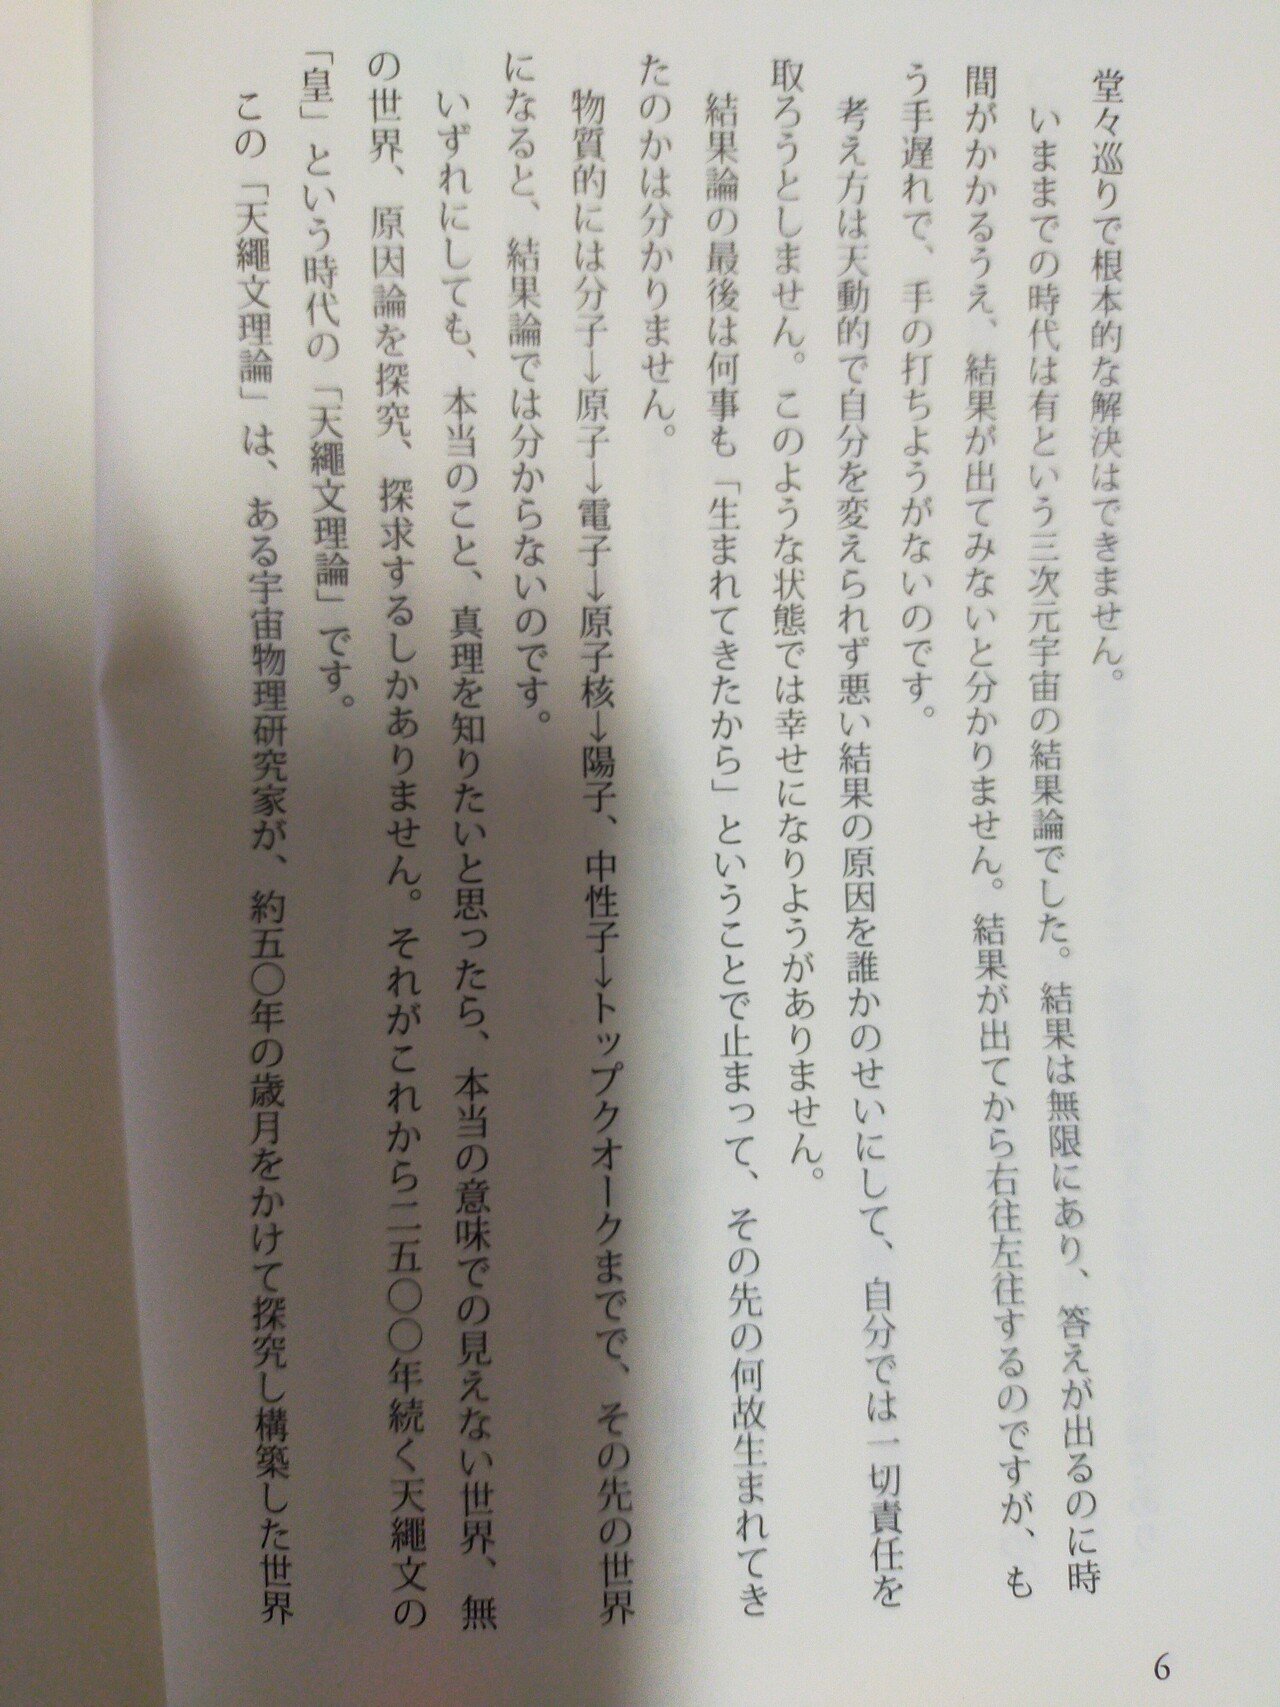 堂々巡りで根本的な解決はできません。
いままでの時代は有という三次元宇宙の結果論でした。結果は無限にあり、答えが出るのに時
間がかかるうえ、結果が出てみないと分かりません。結果が出てから右往左往するのですが、も
う手遅れで、手の打ちようがないのです。
考え方は天動的で自分を変えられず悪い結果の原因を誰かのせいにして、自分では一切責任を
取ろうとしません。このような状態では幸せになりようがありません。
結果論の最後は何事も「生まれてきたから」ということで止まって、その先の何故生まれてき
たのかは分かりません。
物質的には分子→原子→電子→原子核→陽子、中性子→トップクオークまでで、その先の世界
になると、結果論では分からないのです。
いずれにしても、本当のこと、真理を知りたいと思ったら、本当の意味での見えない世界、無
の世界、原因論を探究、探求するしかありません。それがこれから二五〇〇年続く天繩文の
「皇」という時代の「天繩文理論」です。
この「天繩文理論」は、ある宇宙物理研究家が、約五〇年の歳月をかけて探究し構築した世界
6